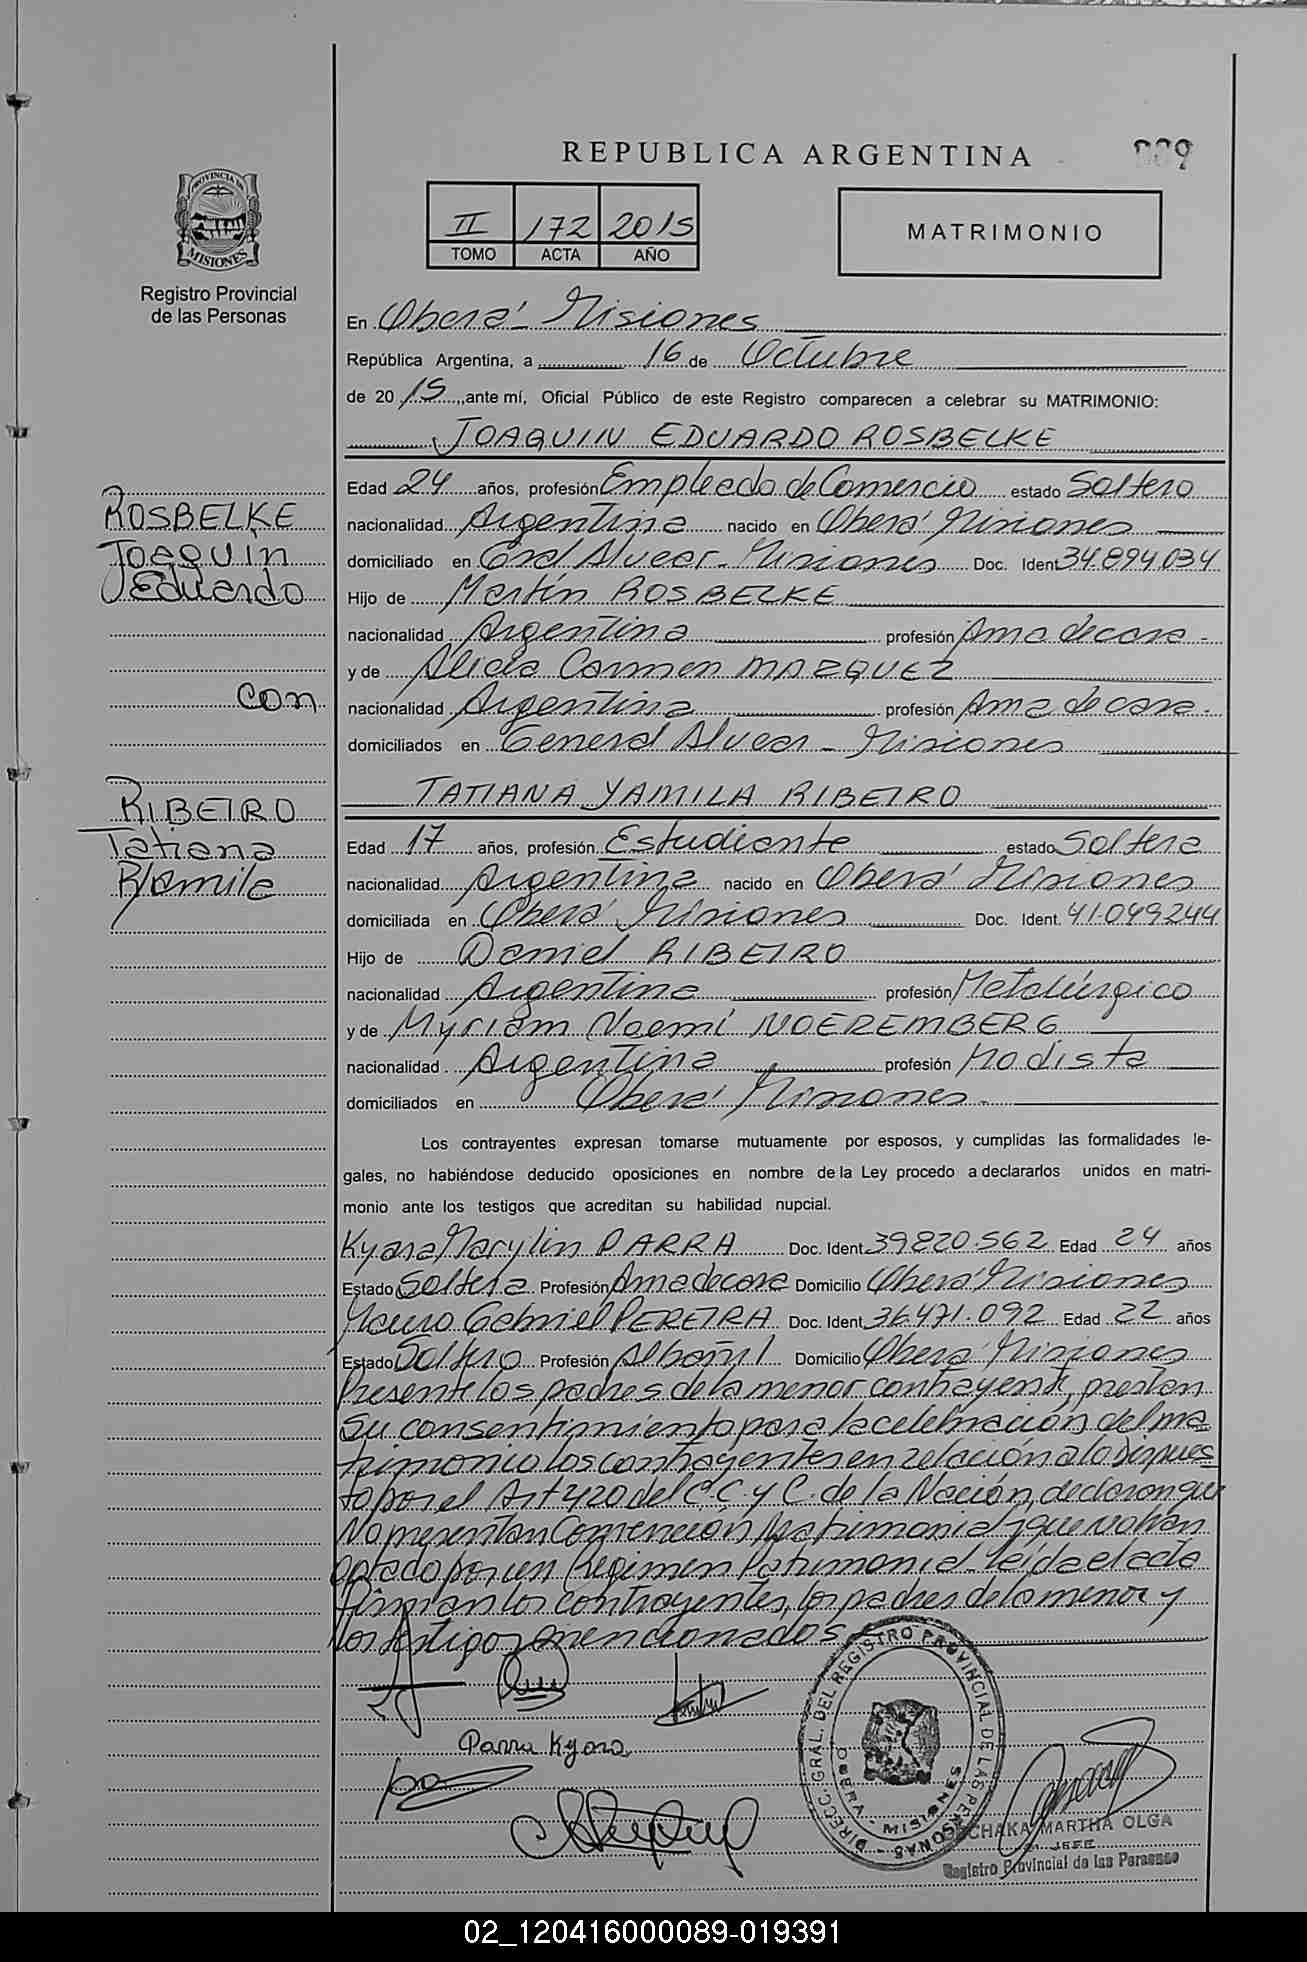 REPUBLICA ARGENTINA
009
PROVINCIA DE
MISIONES
Registro Provincial
de las Personas
II 172 2015
TOMO ACTA AÑO
MATRIMONIO
En Oberá - Misiones
República Argentina, a 16 de Octubre
de 20 15, ante mí, Oficial Público de este Registro comparecen a celebrar su MATRIMONIO:
JOAQUIN EDUARDO ROSBELKE
Edad 24 años, profesión Empleado de Comercio estado Soltero
nacionalidad Argentina nacido en Oberá Misiones
domiciliado en Gral Alvear - Misiones Doc. Ident 34.894.034
Hijo de Martín ROSBELKE
nacionalidad Argentina profesión Ama de casa -
y de Alicia Carmen MARQUEZ
nacionalidad Argentina profesión Ama de casa -
domiciliados en General Alvear - Misiones
ROSBELKE
Joaquín
Eduardo
con
RIBEIRO
Tatiana
Yamila
TATIANA YAMILA RIBEIRO
Edad 17 años, profesión Estudiante estado Soltera
nacionalidad Argentina nacido en Oberá Misiones
domiciliada en Oberá Misiones Doc. Ident. 41.049.244
Hijo de Daniel RIBEIRO
nacionalidad Argentina profesión Metalúrgico
y de Myriam Noemí NOEREMBERG
nacionalidad Argentina profesión Modista
domiciliados en Oberá Misiones -
Los contrayentes expresan tomarse mutuamente por esposos, y cumplidas las formalidades le-
gales, no habiéndose deducido oposiciones en nombre de la Ley procedo a declararlos unidos en matri-
monio ante los testigos que acreditan su habilidad nupcial.
Kyara Marylin PARRA Doc. Ident 39820.562 Edad 24 años
Estado Soltera Profesión Ama de casa Domicilio Oberá Misiones
Mauro Gabriel PEREIRA Doc. Ident 36.471.092 Edad 22 años
Estado Soltero Profesión Albañil Domicilio Oberá Misiones
Presente los padres de la menor contrayente, prestan
su consentimiento para la celebración del ma
trimonio los contrayentes en relación a lo Dispues
to por el Art 420 del C.C. y C. de la Nación, declaran que
No presentan Convención Matrimonial y que no han
optado por un Regimen Patrimonial - leída el acta
firman los contrayentes, los padres de la menor y
los testigos mencionados
Parra Kyara
DIRECC. GRAL. DEL REGISTRO PROVINCIAL DE LAS PERSONAS -
OBERA - MISIONES
CHAKA MARTHA OLGA
JEFE
Registro Provincial de las Personas
02_120416000089-019391